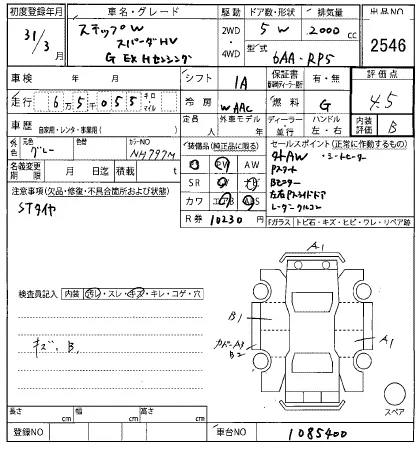 初度登録年月 車名・グレード 駆動 ドア数・形状 排気量 出品NO
31/3月 ステップW 2WD・4WD 5 W 2000cc 2546
スパーダHV 型式 6AA-RP5
G EX Hセンシング
車検 年 月 シフト IA 保証書 有・無 評価点
走行 6万5千055 キロ マイル 冷房 WAAC 燃料 G 4.5
車歴 自家用・レンタ・事業用( ) 定員 外車モデル 年 ディーラー 並行 ハンドル 左・右 内装 B
外色 元色 グレー 色替 カラーNO NH797M 装備品(純正品に限る) セールスポイント(正常に作動するもの)
社外AW ・シートヒーター
名義変更期限 月 日迄 積載 t SR PW AW Pスタート
Bモニター
注意事項(欠品・修復・不具合箇所および状態) カワ エアB ABS 左右Pスライドドア
STタイヤ R券 10230円 レーダークルコン
Fガラス トビ石・キズ・ヒビ・ワレ・リペア跡
A1
検査員記入 内装 汚レ・スレ・キズ・キレ・コゲ・穴
B1
キズ、B1 カドーA1 B2 A1
A1
スペア
長さ cm 幅 cm 高さ cm
登録NO 車台NO 1085400